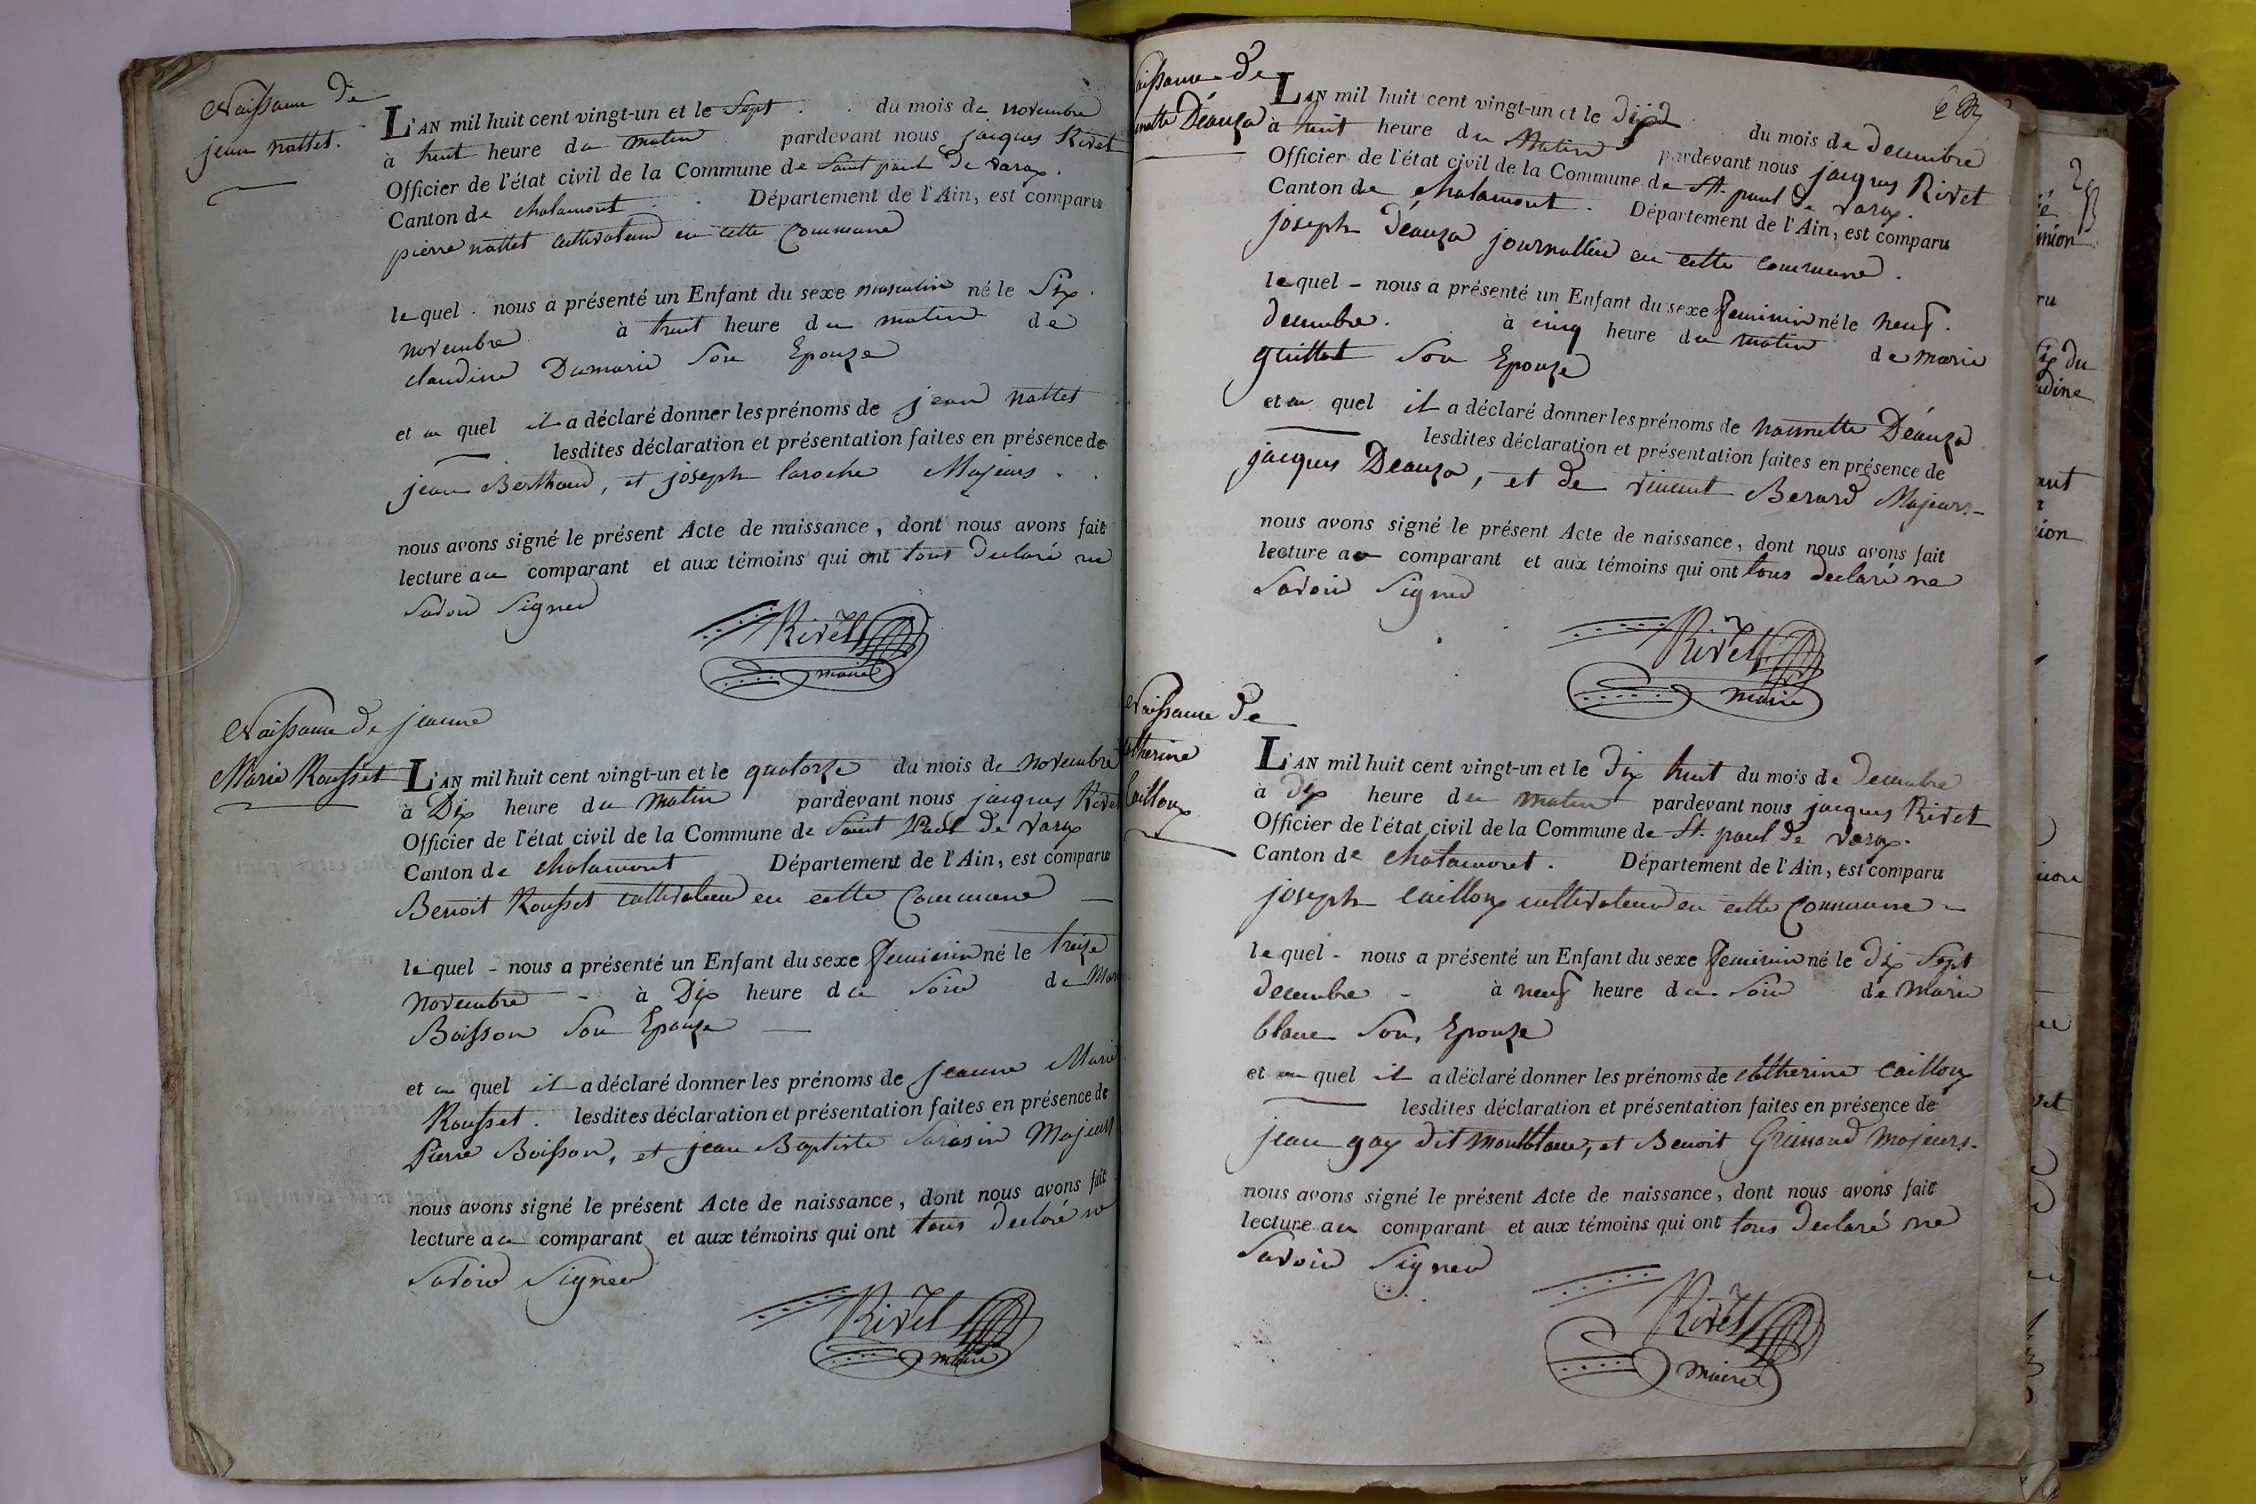 Naissance de
jean nattet.
L'AN mil huit cent vingt-un et le Sept du mois de novembre
à huit heure du matin pardevant nous jacques Rivet
Officier de l'état civil de la Commune de Saint paul de varax.
Canton de chalamont Département de l'Ain, est comparu
pierre nattet cultivateur en cette Commune
lequel nous a présenté un Enfant du sexe masculin né le Six
novembre à huit heure du matin de
claudine Damarie Son Epouze
et au quel il a déclaré donner les prénoms de jean nattet
lesdites déclaration et présentation faites en présence de
jean Berthaud, et joseph laroche Majeurs
nous avons signé le présent Acte de naissance, dont nous avons fait
lecture au comparant et aux témoins qui ont tous declaré ne
Savoir Signer
Rivet
maire
Naissance de jeanne
Marie Rousset
L'AN mil huit cent vingt-un et le quatorze du mois de novembre
à Dix heure du Matin pardevant nous jacques Rivet
Officier de l'état civil de la Commune de Saint Paul de Varax
Canton de chalamont Département de l'Ain, est comparu
Benoit Rousset cultivateur en cette Commune
lequel - nous a présenté un Enfant du sexe feminin né le treize
novembre - à Dix heure du Soir de Mar
Boisson Son Epouze
et au quel il a déclaré donner les prénoms de jeanne Marie
Rousset. lesdites déclaration et présentation faites en présence de
Pierre Boisson, et jean Baptiste Sarasin Majeurs
nous avons signé le présent Acte de naissance, dont nous avons fait
lecture au comparant et aux témoins qui ont tous declaré ne
Savoir Signer
Rivet
maire
aissance de
nette Déauza
L'AN mil huit cent vingt-un et le dix du mois de decembre
à huit heure du Matin pardevant nous jacques Rivet
Officier de l'état civil de la Commune de St. paul de varax.
Canton de chalamont. Département de l'Ain, est comparu
joseph Déauza journallier en cette commune.
lequel - nous a présenté un Enfant du sexe feminin né le neuf.
decembre. à cinq heure du matin de marie
guillot Son Epouze
et au quel il a déclaré donner les prénoms de nannette Déauza
lesdites déclaration et présentation faites en présence de
jacques Deauza, et de vincent Berard Majeurs-
nous avons signé le présent Acte de naissance, dont nous avons fait
lecture au comparant et aux témoins qui ont tous declaré ne
Savoir Signer
Rivet
maire
Naissance de
catherine
Cailloux
L'AN mil huit cent vingt-un et le dix huit du mois de decembre
à dix heure du matin pardevant nous jacques Rivet
Officier de l'état civil de la Commune de St. paul de varax.
Canton de chalamont. Département de l'Ain, est comparu
joseph cailloux cultivateur en cette Commune -
lequel - nous a présenté un Enfant du sexe feminin né le dix Sept
decembre - à neuf heure du Soir de Marie
blanc Son Epouze
et au quel il a déclaré donner les prénoms de catherine cailloux
lesdites déclaration et présentation faites en présence de
jean gay dit montblanc, et Benoit Grimaud Majeurs-
nous avons signé le présent Acte de naissance, dont nous avons fait
lecture au comparant et aux témoins qui ont tous declaré ne
Savoir Signer
Rivet
maire